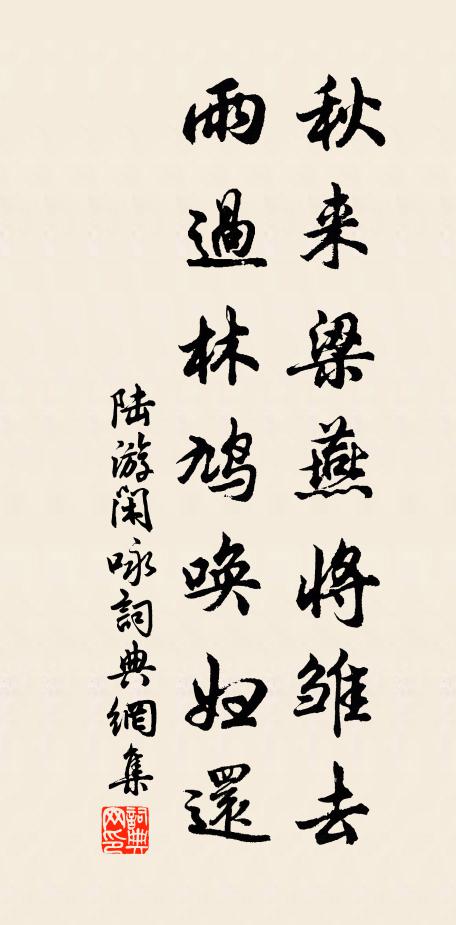 秋来梁燕将雏去
雨過林鳩唤妇還
陆游闲咏詞典網集
詞典网印